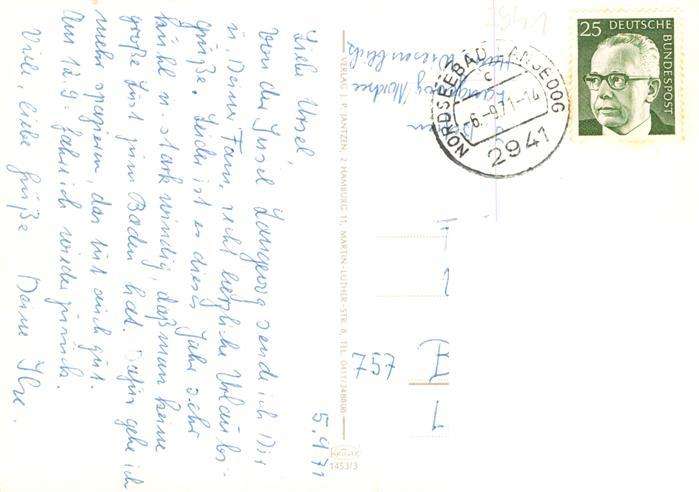 5.9.71
Liebe Ursel,
von der Insel Langeoog sende ich Dir
u. Deiner Fam. recht herzliche Urlaubs-
grüße. Leider ist es dieses Jahr sehr
kühl u. stark windig, daß man keine
große Lust zum Baden hat. Dafür gehe ich
mehr spazieren, das tut auch gut.
Am 12.9. fahre ich wieder zurück.
Viele, liebe Grüße Deine Ilse.
VERLAG P. JANTZEN, 2 HAMBURG 11, MARTIN-LUTHER-STR. 8, TEL. 0411/348808
KRÜGER
1453/3
25 DEUTSCHE
BUNDESPOST
NORDSEEBAD LANGEOOG
c
-6.-9.71-14
2941
Langeoog Nordsee
757